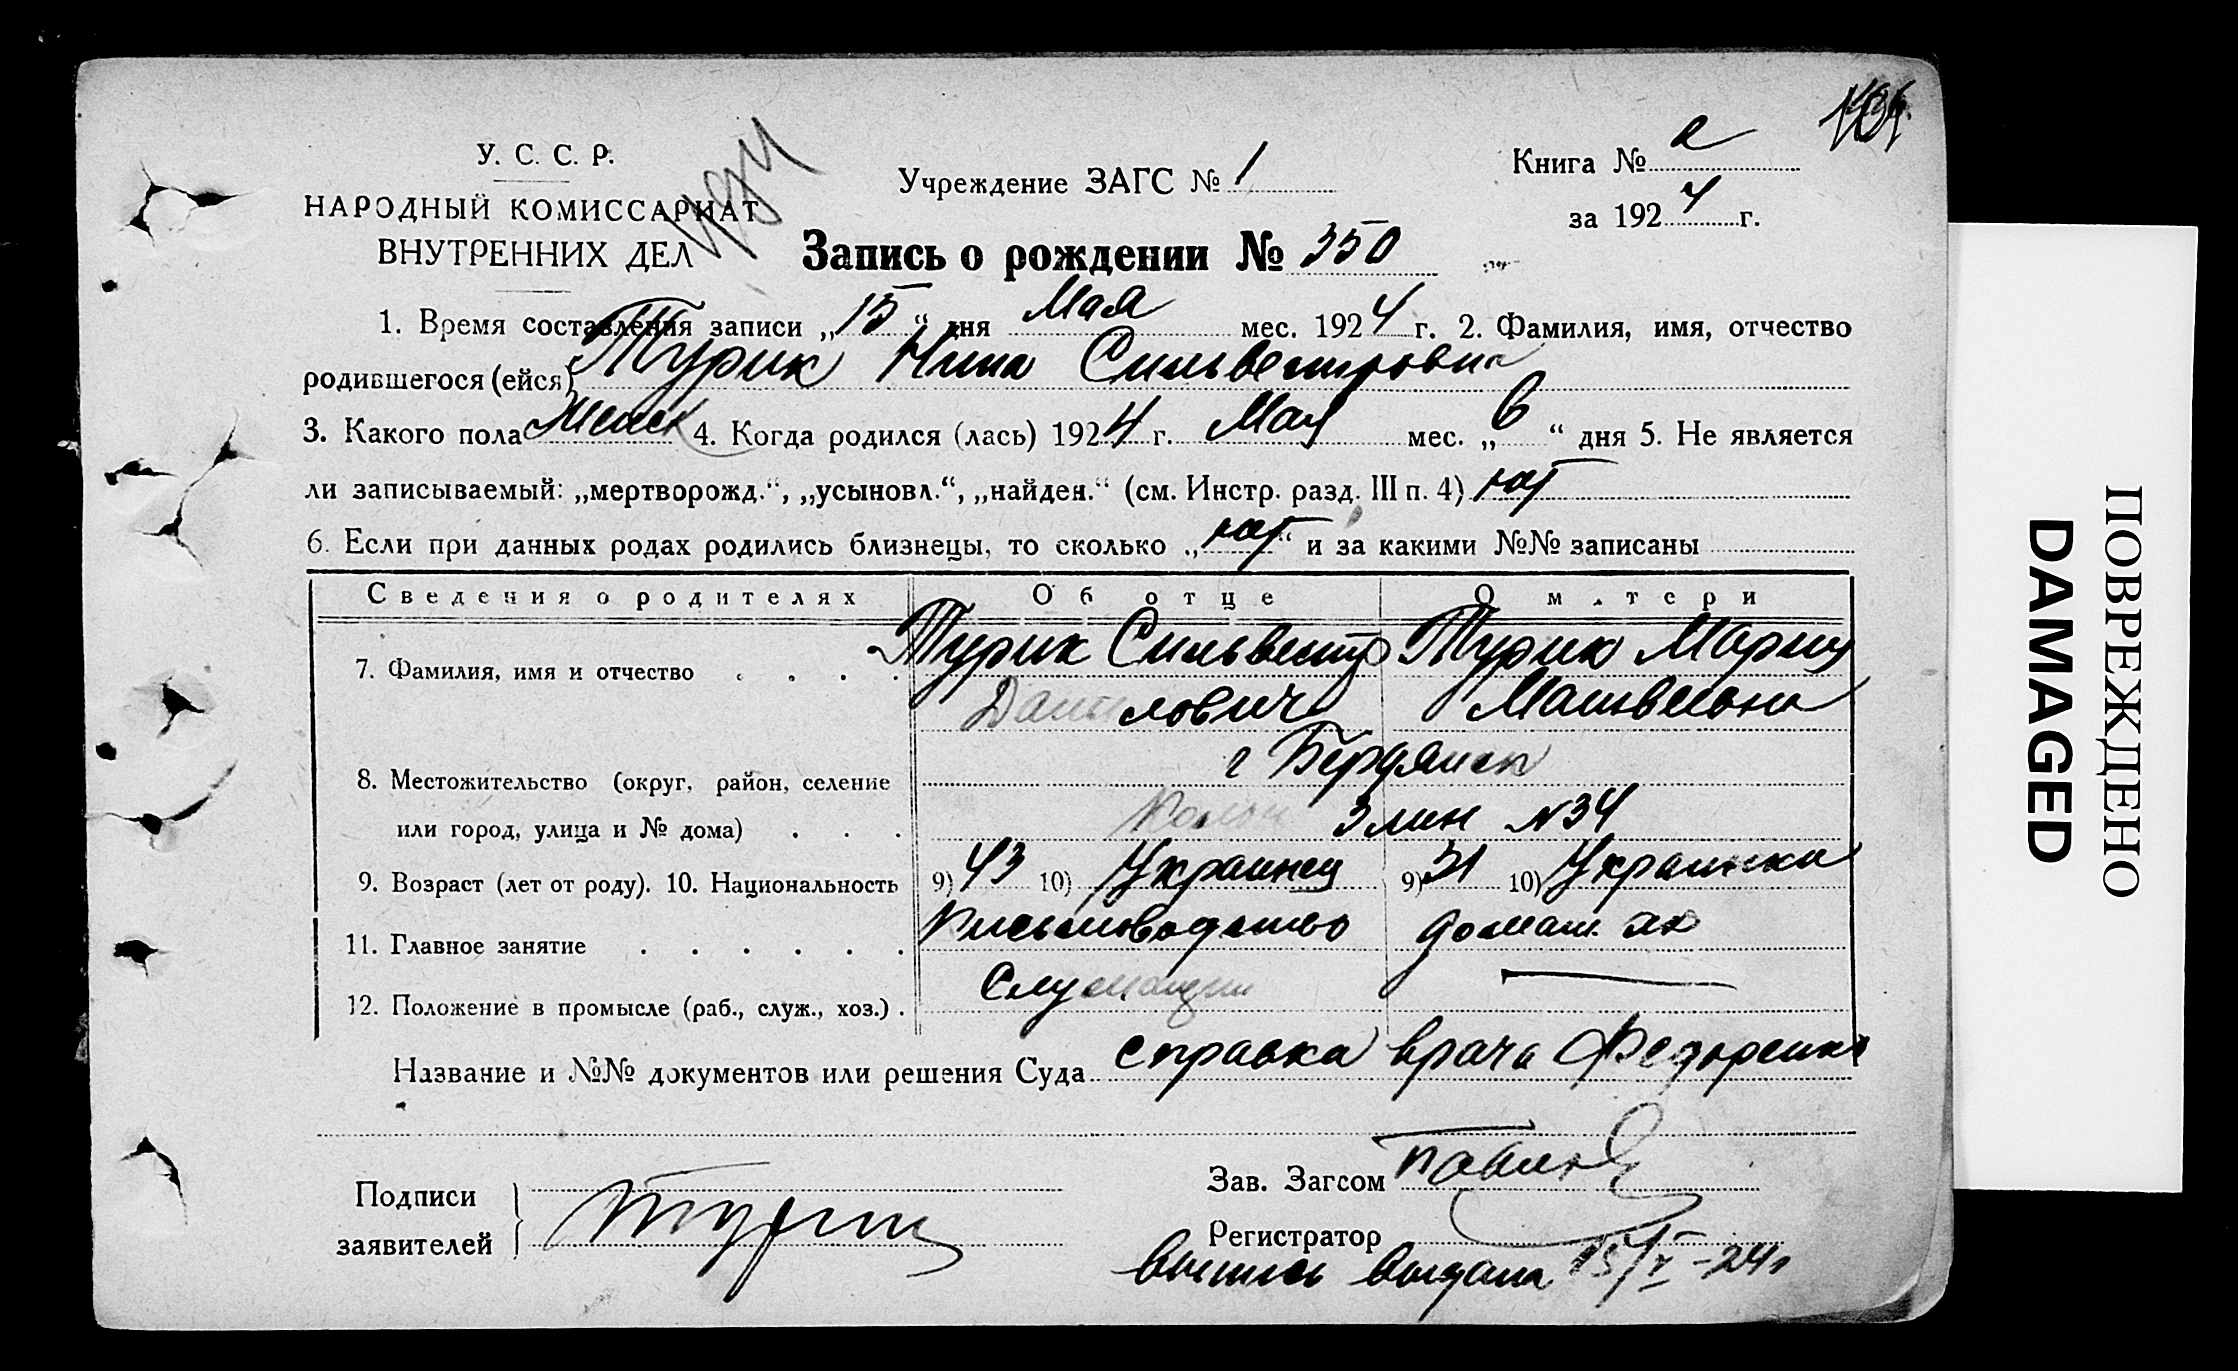 У. С. С. Р.
НАРОДНЫЙ КОМИССАРИАТ
ВНУТРЕННИХ ДЕЛ
Учреждение ЗАГС № 1
Книга №
за 1924 г.
Запись о рождении № 350
1. Время составления записи „15“ дня Мая мес. 1924 г. 2. Фамилия, имя, отчество
родившегося (ейся) Турик Нина Сильвестровна
3. Какого пола Женск 4. Когда родился (лась) 1924 г. Мая мес. „6“ дня 5. Не является
ли записываемый: „мертворожд.“, „усыновл.“, „найден.“ (см. Инстр. разд. III п. 4) нет
6. Если при данных родах родились близнецы, то сколько „нет“ и за какими №№ записаны
Сведения о родителях Об отце О матери
7. Фамилия, имя и отчество Турик Сильвестр Турик Мария
Данилович Матвеевна
г Бердянск
8. Местожительство (округ, район, селение
или город, улица и № дома) 3 лин № 34
9. Возраст (лет от роду). 10. Национальность 9) 43 10) Украинец 9) 31 10) Украинка
11. Главное занятие Письмоводство домаш. хоз
12. Положение в промысле (раб., служ., хоз.) Служащий
Название и №№ документов или решения Суда справка врача Федоренко
Подписи
заявителей
Турик
Зав. Загсом
Регистратор
выпись выдана 15/V-24г
ПОВРЕЖДЕНО
DAMAGED